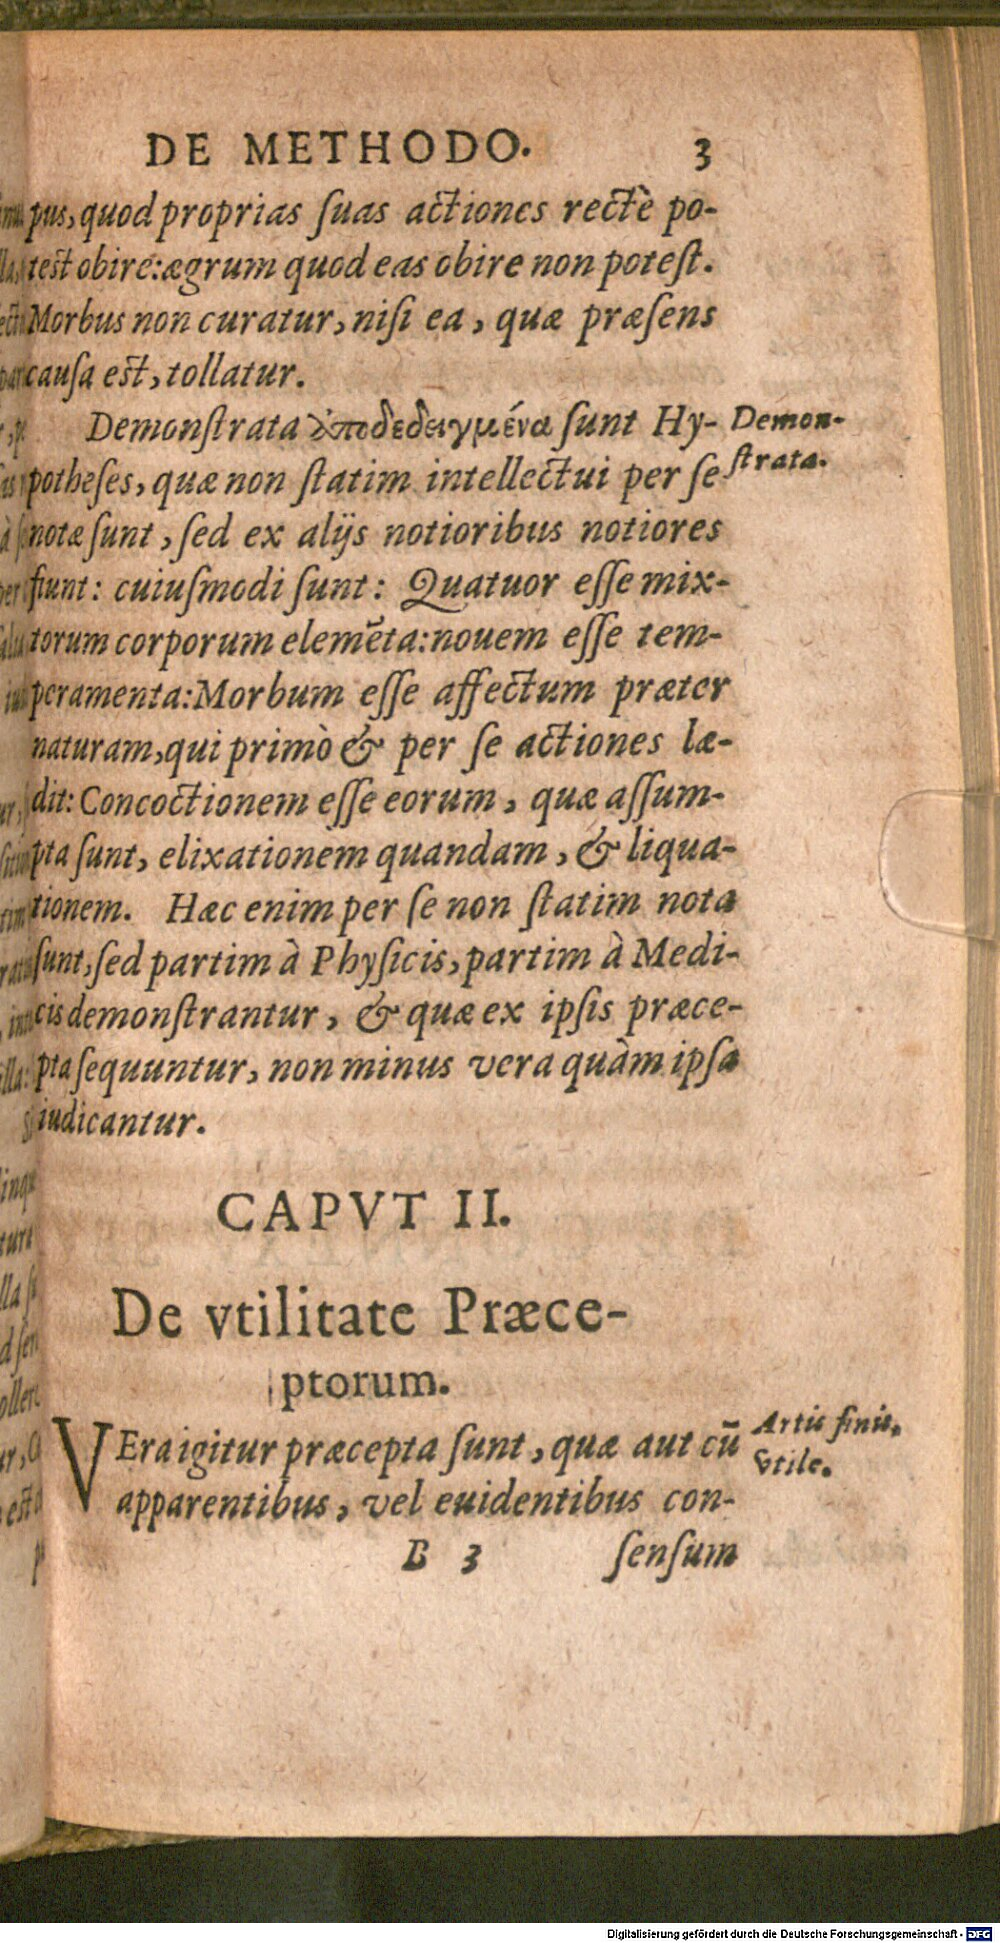 DE METHODO. 3
pus, quod proprias suas actiones rectè po-
test obire: ægrum quod eas obire non potest.
Morbus non curatur, nisi ea, quæ præsens
causa est, tollatur.
Demonstrata ὑποδεδειγμένα sunt Hy-
Demon-
strata.
potheses, quæ non statim intellectui per se
notæ sunt, sed ex alijs notioribus notiores
fiunt: cuiusmodi sunt: Quatuor esse mix-
torum corporum elemēta: nouem esse tem-
peramenta: Morbum esse affectum præter
naturam, qui primò & per se actiones læ-
dit: Concoctionem esse eorum, quæ assum-
pta sunt, elixationem quandam, & liqua-
tionem. Hæc enim per se non statim nota
sunt, sed partim à Physicis, partim à Medi-
cis demonstrantur, & quæ ex ipsis præce-
pta sequuntur, non minus vera quàm ipsa
iudicantur.
CAPVT II.
De vtilitate Præce-
ptorum.
VEra igitur præcepta sunt, quæ aut cū
Artis finis,
vtile.
apparentibus, vel euidentibus con-
B 3 sensum
Digitalisierung gefördert durch die Deutsche Forschungsgemeinschaft - DFG